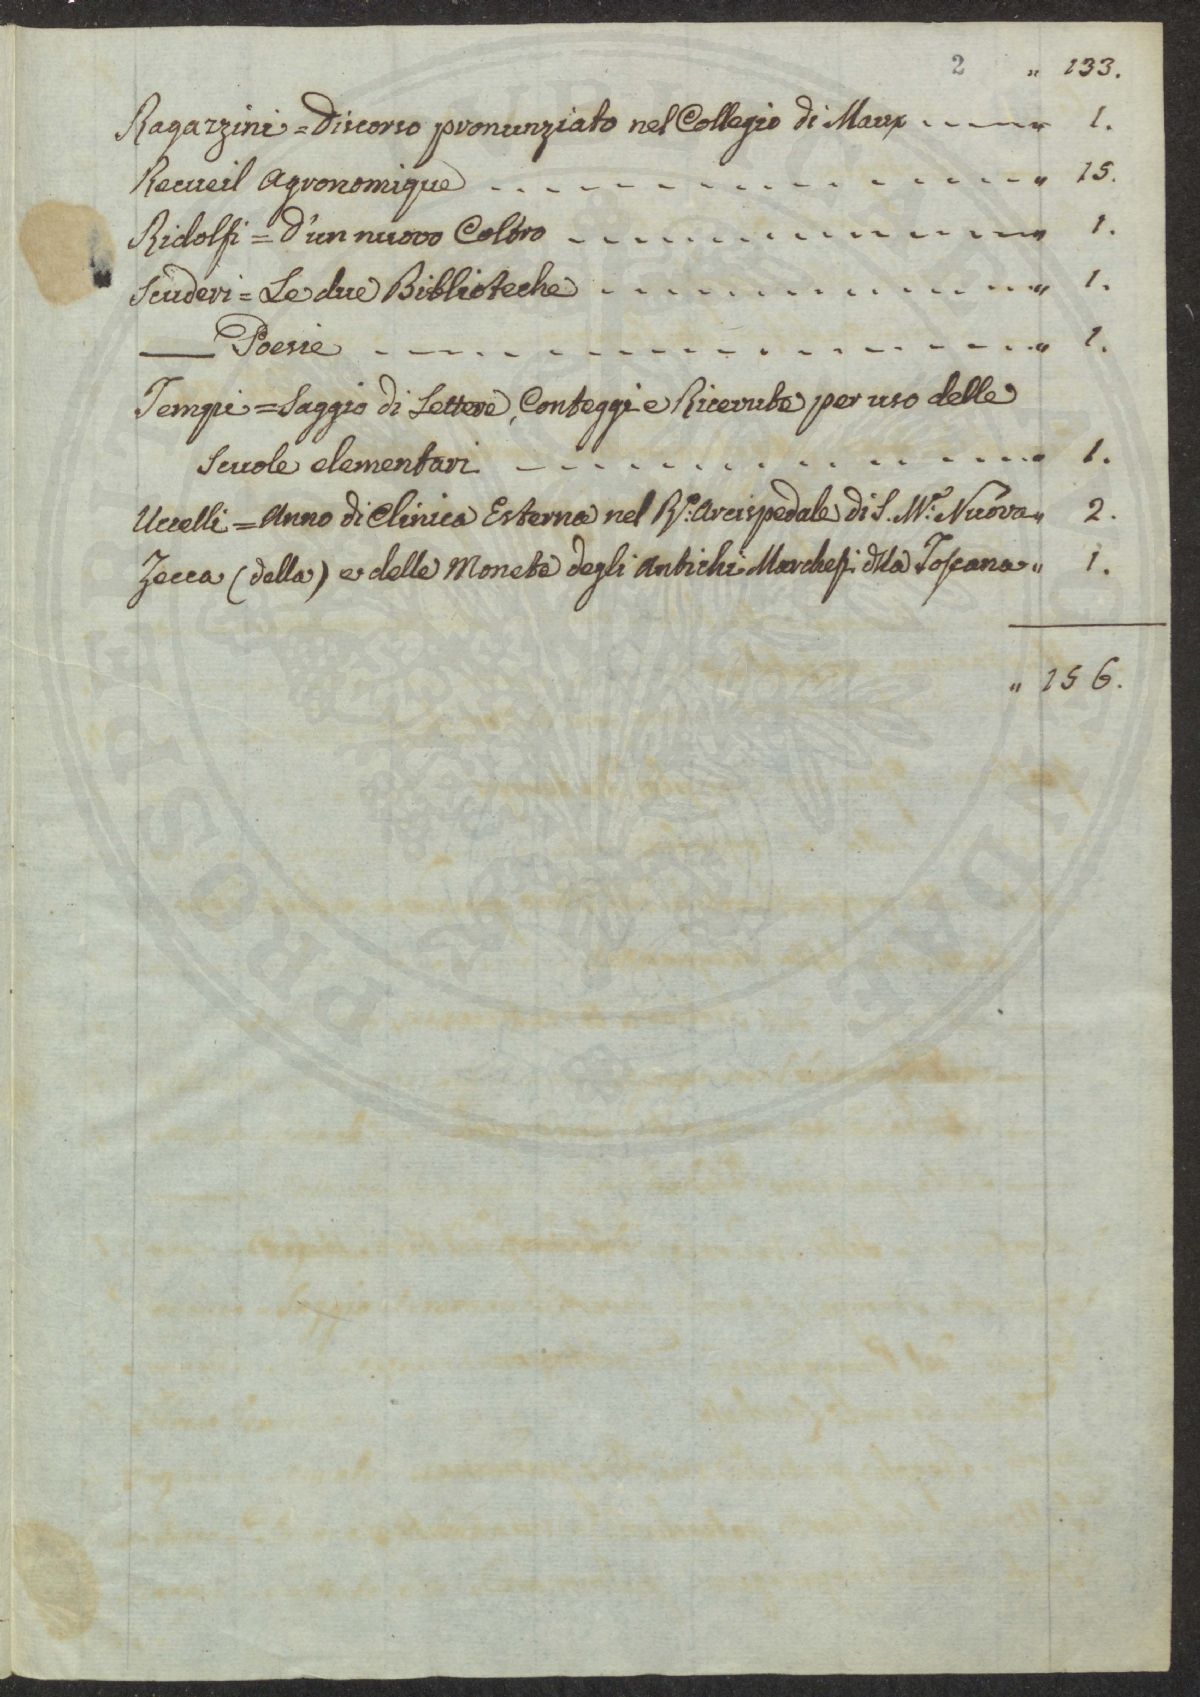 2 " 133.
Ragazzini = Discorso pronunziato nel Collegio di Marx - - - - " 1.
Recueil Agronomique - - - - - - - - - - - - - - - - " 15.
Ridolfi = D'un nuovo Coltro - - - - - - - - - - - - - - " 1.
Scuderi = Le due Biblioteche - - - - - - - - - - - - - " 1.
—— Poesie - - - - - - - - - - - - - - - - - - - " 1.
Tempi = Saggio di Lettere, Conteggi e Ricevute per uso delle
Scuole elementari - - - - - - - - - - - - - - - - " 1.
Uccelli = Anno di Clinica Esterna nel R.º Arcispedale di S. M.ª Nuova " 2.
Zecca (della) e delle Monete degli Antichi Marchesi della Toscana " 1.
" 156.